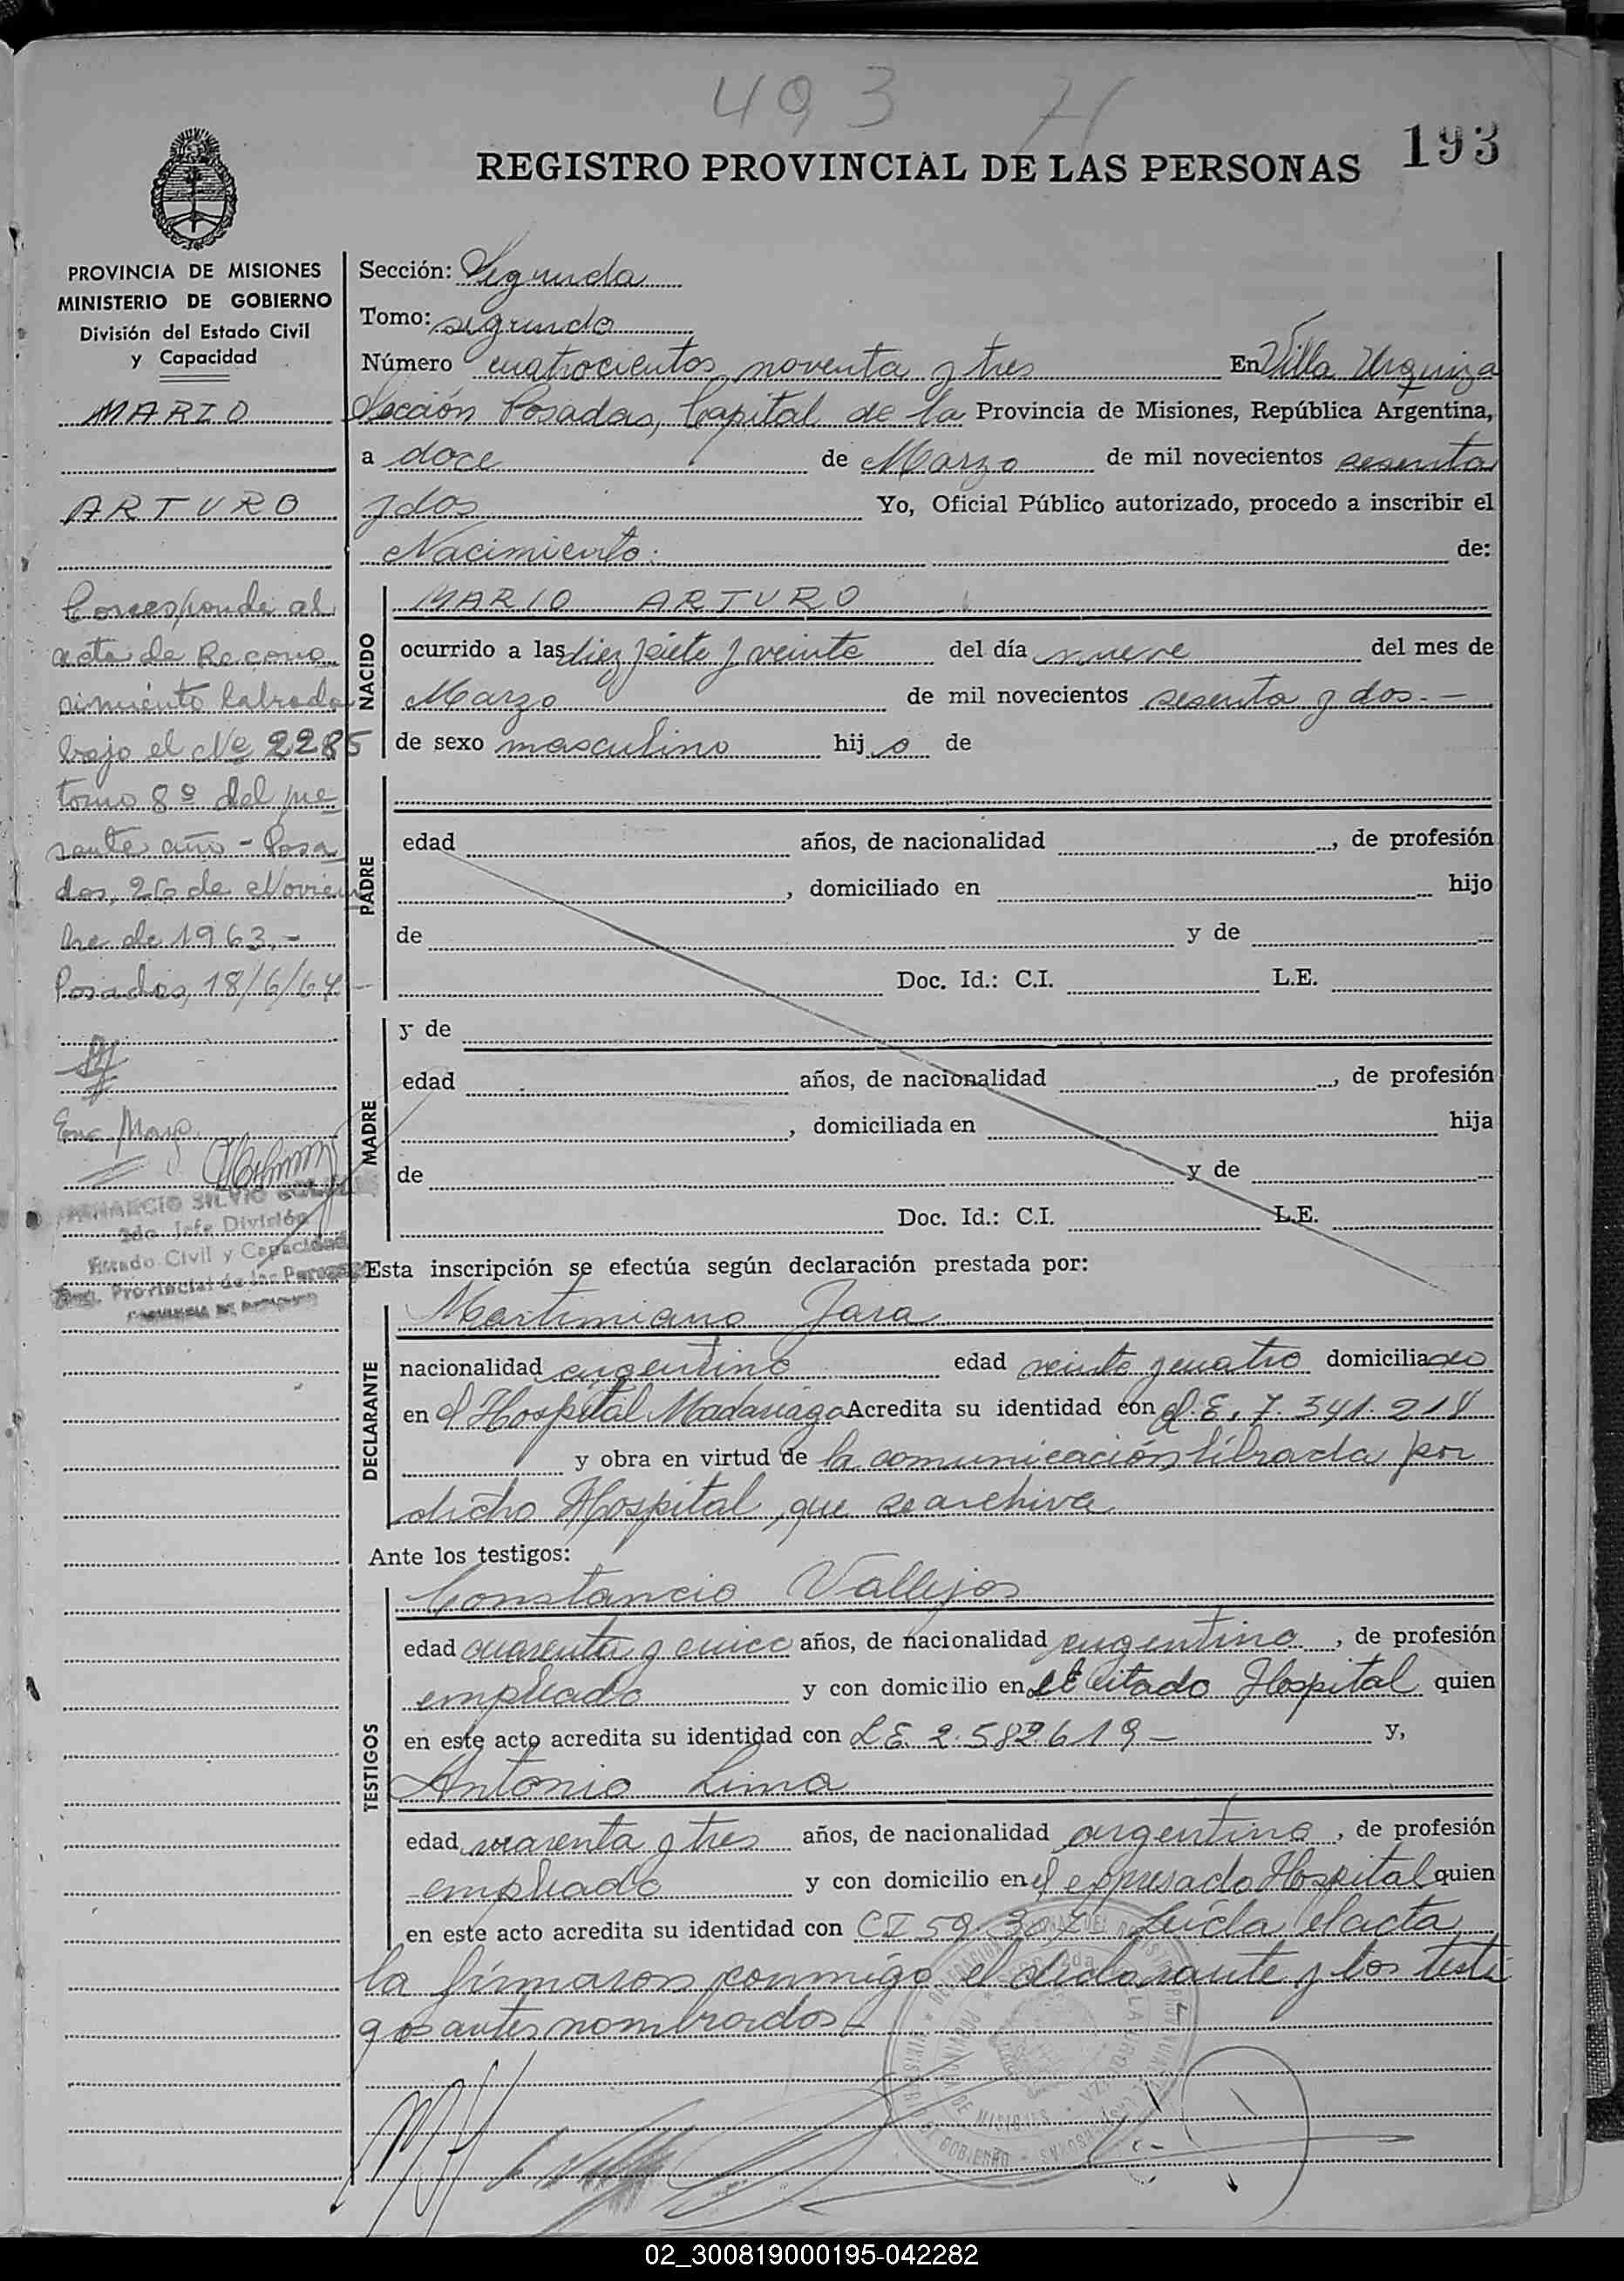 493 H
193
REGISTRO PROVINCIAL DE LAS PERSONAS
PROVINCIA DE MISIONES
MINISTERIO DE GOBIERNO
División del Estado Civil
y Capacidad
MARIO
ARTURO
Corresponde al
acta de Recono
simiento labrada
bajo el Nº 2285
tomo 8º del pre
sente año - Posa
das, 26 de Noviem
bre de 1963.-
Posadas, 18/6/64
Enc. Mayo
SILVIO
2do. Jefe División
Estado Civil y Capacidad
Reg. Provincial de las Personas
PROVINCIA DE MISIONES
Sección: Segunda
Tomo: segundo
Número cuatrocientos noventa y tres En Villa Urquiza
Sección Posadas, Capital de la Provincia de Misiones, República Argentina,
a doce de Marzo de mil novecientos sesenta
y dos Yo, Oficial Público autorizado, procedo a inscribir el
Nacimiento: de:
NACIDO
MARIO ARTURO
ocurrido a las diez siete y veinte del día nueve del mes de
Marzo de mil novecientos sesenta y dos.-
de sexo masculino hijo de
PADRE
edad años, de nacionalidad , de profesión
, domiciliado en hijo
de y de
Doc. Id.: C.I. L.E.
MADRE
y de
edad años, de nacionalidad , de profesión
, domiciliada en hija
de y de
Doc. Id.: C.I. L.E.
Esta inscripción se efectúa según declaración prestada por:
DECLARANTE
Martimiano Jara
nacionalidad argentino edad veinte y cuatro domiciliado
en el Hospital Madariaga Acredita su identidad con L.E. 7.341.218
y obra en virtud de la comunicación librada por
dicho Hospital, que se archiva
Ante los testigos:
TESTIGOS
Constancio Vallejos
edad cuarenta y cinco años, de nacionalidad argentino, de profesión
empleado y con domicilio en el citado Hospital quien
en este acto acredita su identidad con L.E. 2.582.619- y,
Antonio Lima
edad cuarenta y tres años, de nacionalidad argentino, de profesión
empleado y con domicilio en el expresado Hospital quien
en este acto acredita su identidad con CI 59. Leída el acta
la firmaron conmigo el declarante y los testi
gos antes nombrados-
02_300819000195-042282